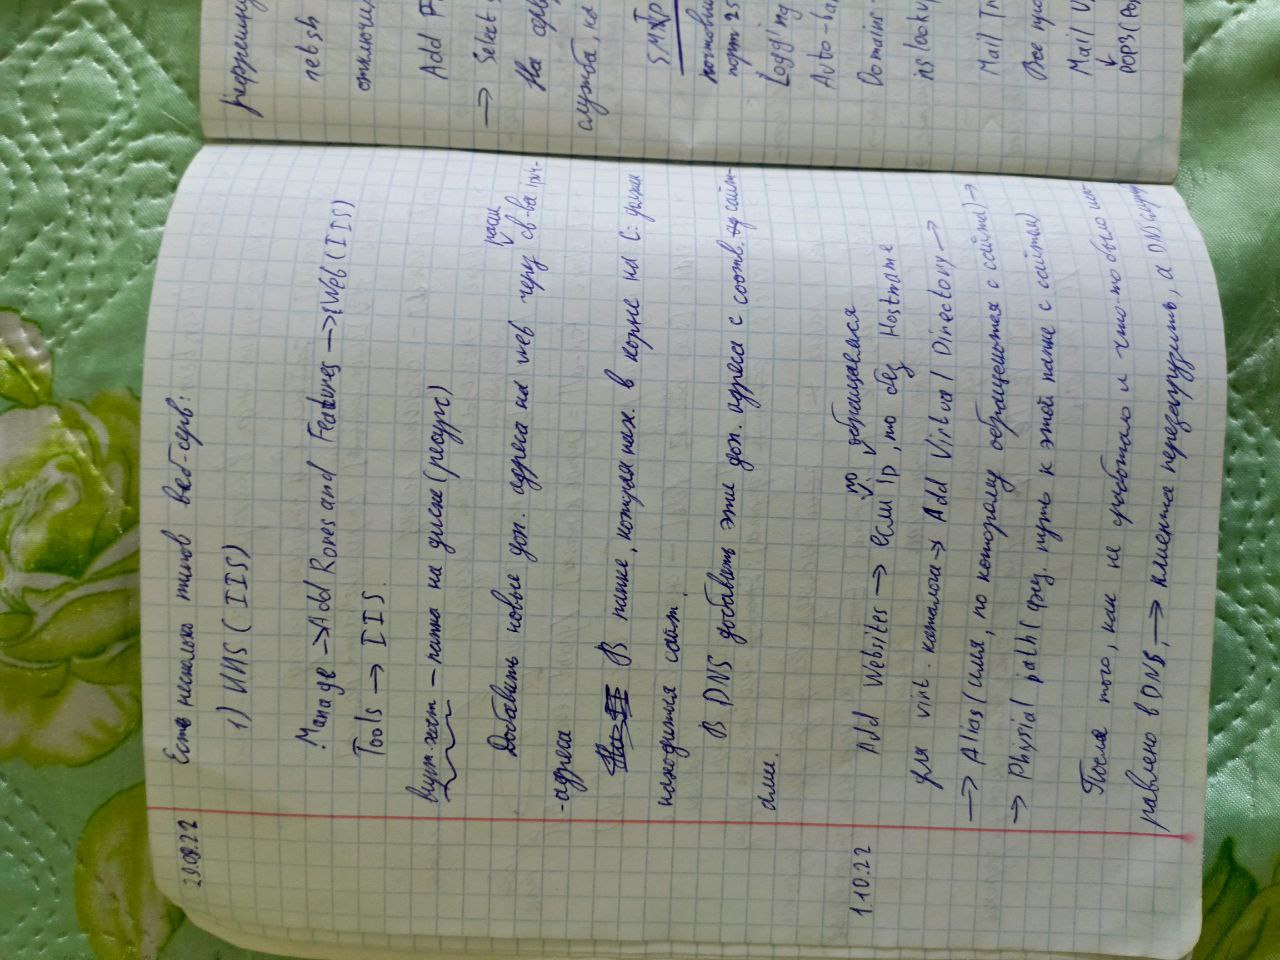 29.09.22 Есть несколько типов веб-серв:
1) ИИS (IIS)
Manage → Add Rones and Features → Web (IIS)
Tools → IIS.
вирт. хост – папка на диске (ресурс)
Добавить новые доп. адреса на web через св-ва ipv4-
-адреса
В папке, которая нах. в корне на C:
находится сайт.
В DNS добавить эти доп. адреса с соотв. сайт-
ами.
1.10.22 Add Websites → если по ip обращаемся, то без Hostname
для virt. каталога → Add Virtual Directory →
→ Alias (имя, по которому обращаются с сайта) →
→ Physial path (физ. путь к этой папке с сайтом)
После того, как не сработало и что-то было исп-
равлено в DNS, → клиента перезагрузить, а DNS
netsh
отключи
Add F
→ Select
На
служба, на
SMTP
порт 25
Logging
Auto-ba
Domain-
nslookup
Mail Tr
Все
Mail U
↓
POP3 (Po